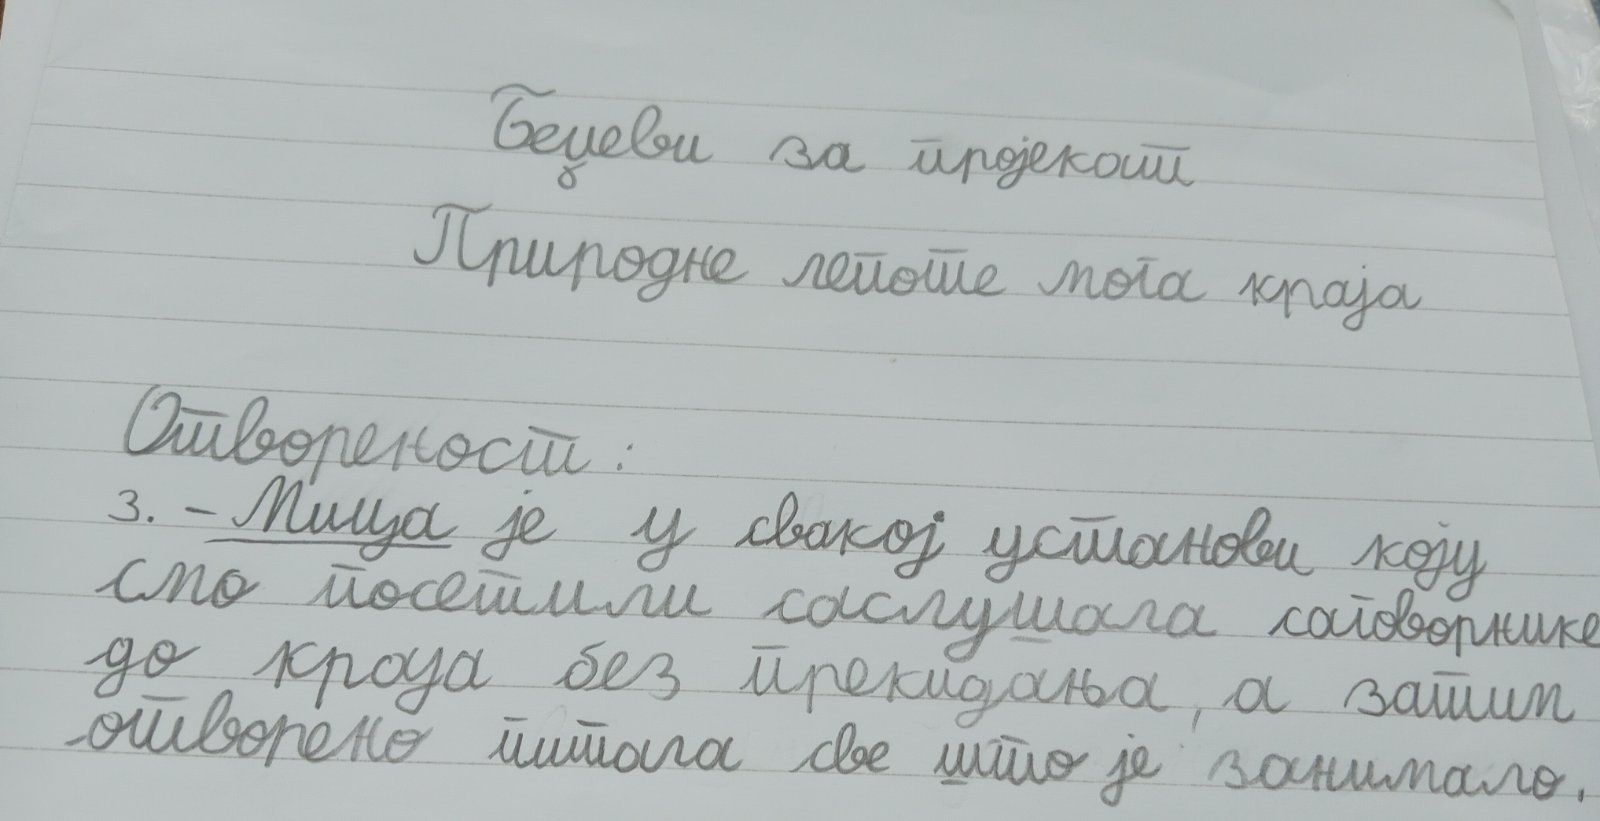 Беџеви за пројекат
Природне лепоте мога краја
Отвореност:
3. - Мица је у свакој установи коју
смо посетили саслушала саговорнике
до краја без прекидања, а затим
отворено питала све што је занимало.